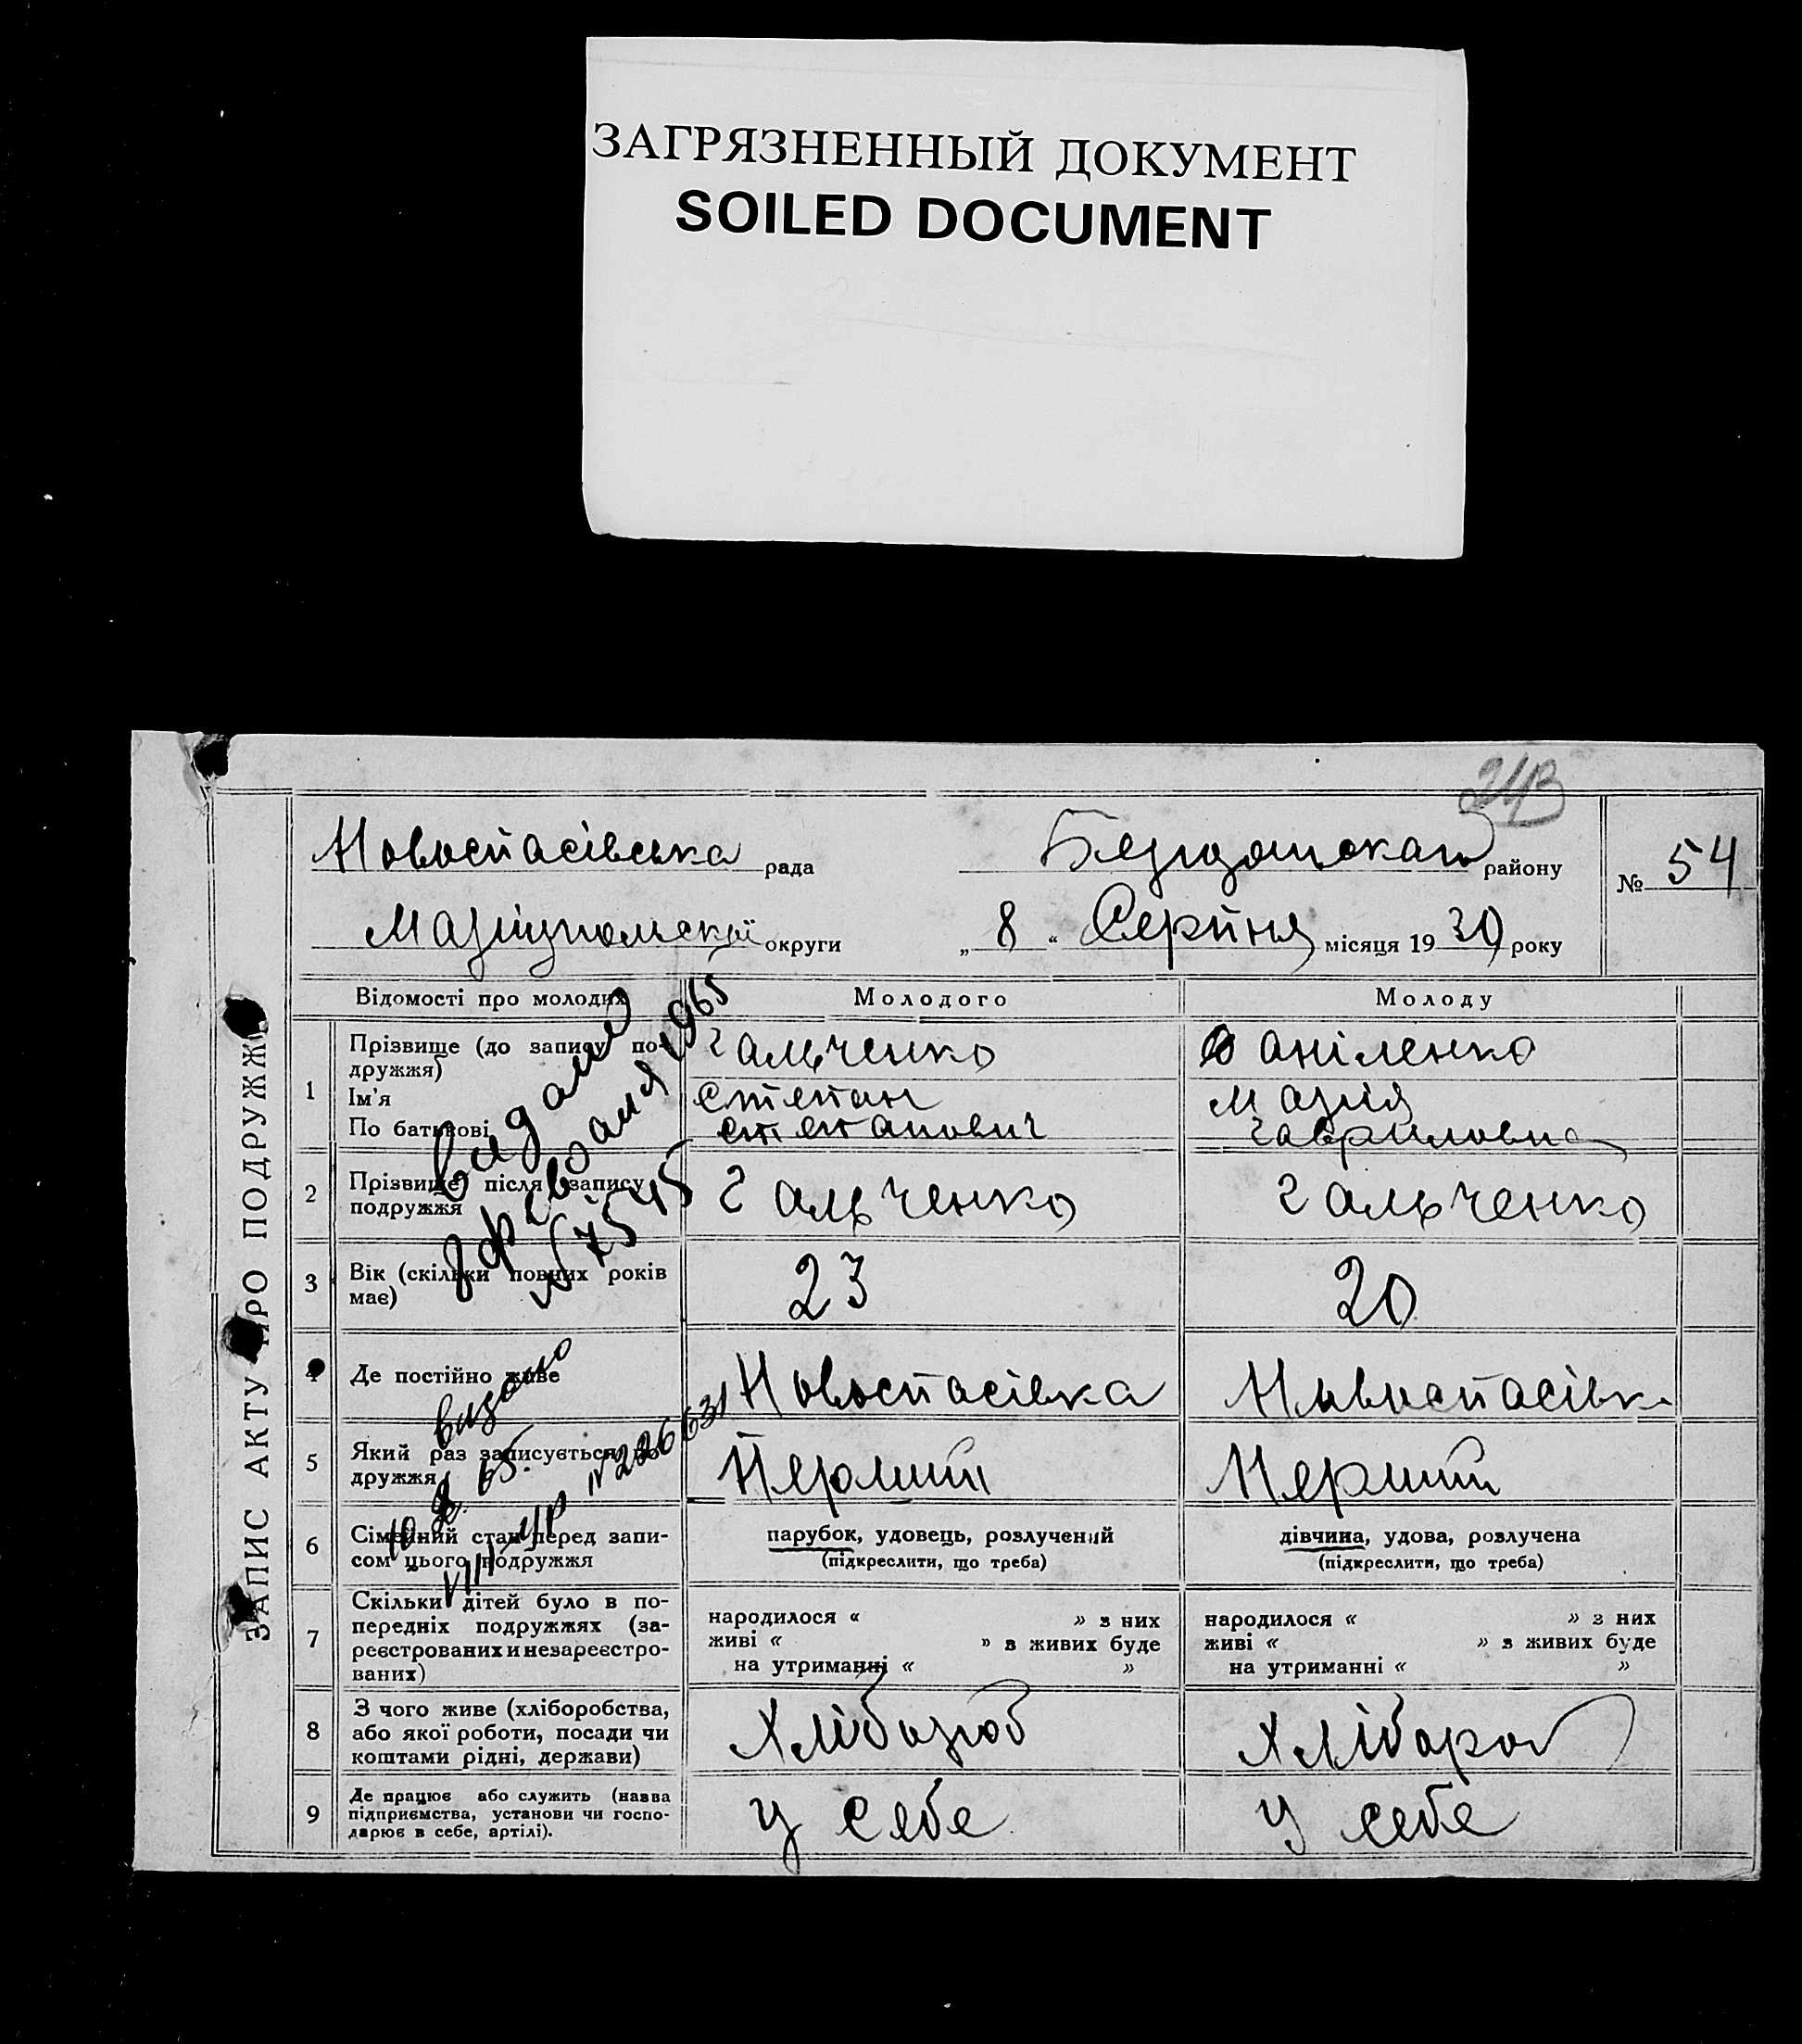 ЗАГРЯЗНЕННЫЙ ДОКУМЕНТ
SOILED DOCUMENT
Новоспасівська рада
району
№ 54
округи
„ 8 “ Серпня місяця 1930 року
ЗАПИС АКТУ ПРО ПОДРУЖЖЯ
Відомості про молодих
Молодого
Молоду
1
Прізвище (до запису по-
дружжя)
Ім'я
По батькові
гальченко
степан
степанович
даніленко
марія
гавриловна
2
Прізвище після запису
подружжя
гальченко
гальченко
3
Вік (скільки повних років
має)
23
20
4
Де постійно живе
Новоспасівка
Новоспасівк
5
Який раз записується по-
дружжя
Перший
Перший
6
Сімейний стан перед запи-
сом цього подружжя
парубок, удовець, розлучений
(підкреслити, що треба)
дівчина, удова, розлучена
(підкреслити, що треба)
7
Скільки дітей було в по-
передніх подружжях (за-
реєстрованих и незареєстро-
ваних)
народилося « » з них
живі « » з живих буде
на утриманні « »
народилося « » з них
живі « » з живих буде
на утриманні « »
8
З чого живе (хліборобства,
або якої роботи, посади чи
коштами рідні, держави)
Хлібороб
Хлібороб
9
Де працює або служить (назва
підприємства, установи чи госпо-
дарює в себе, артілі).
У себе
У себе
видано
1965
N 7545
видано
65.
VIII-УР N 226631